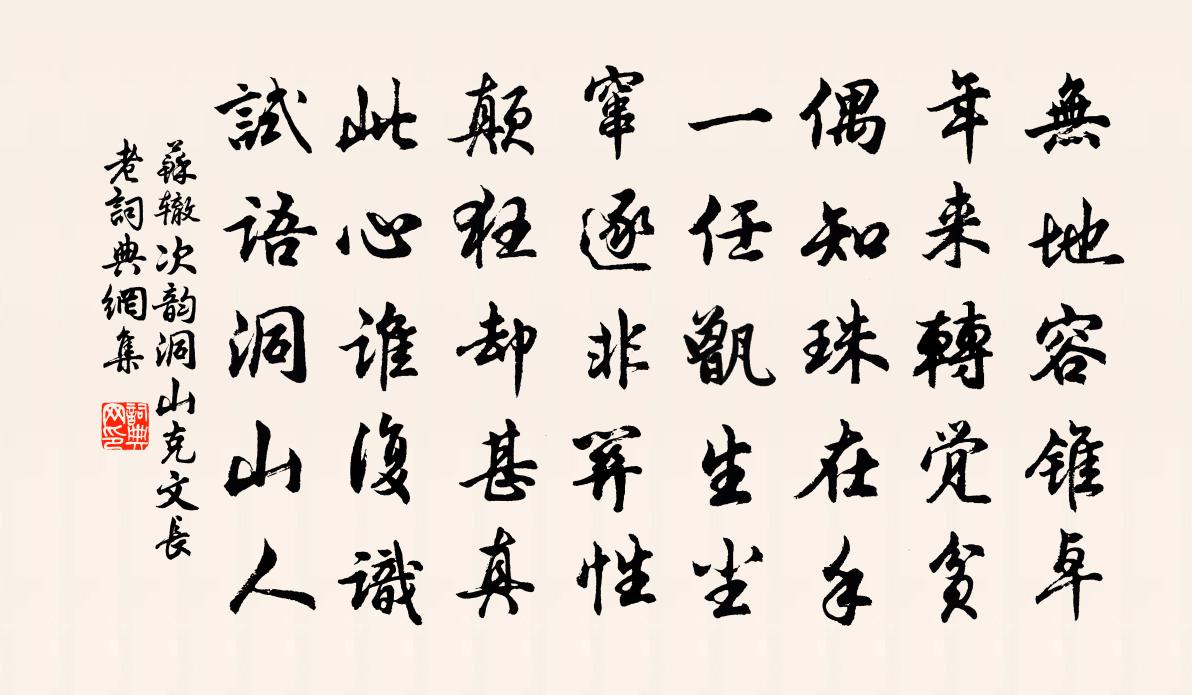 無地容錐卓
年来轉觉貧
偶知珠在手
一任甑生尘
窜逐非關性
顛狂却甚真
此心誰復識
試語洞山人
蘇辙次韵洞山克文長
老詞典網集
詞典
网印